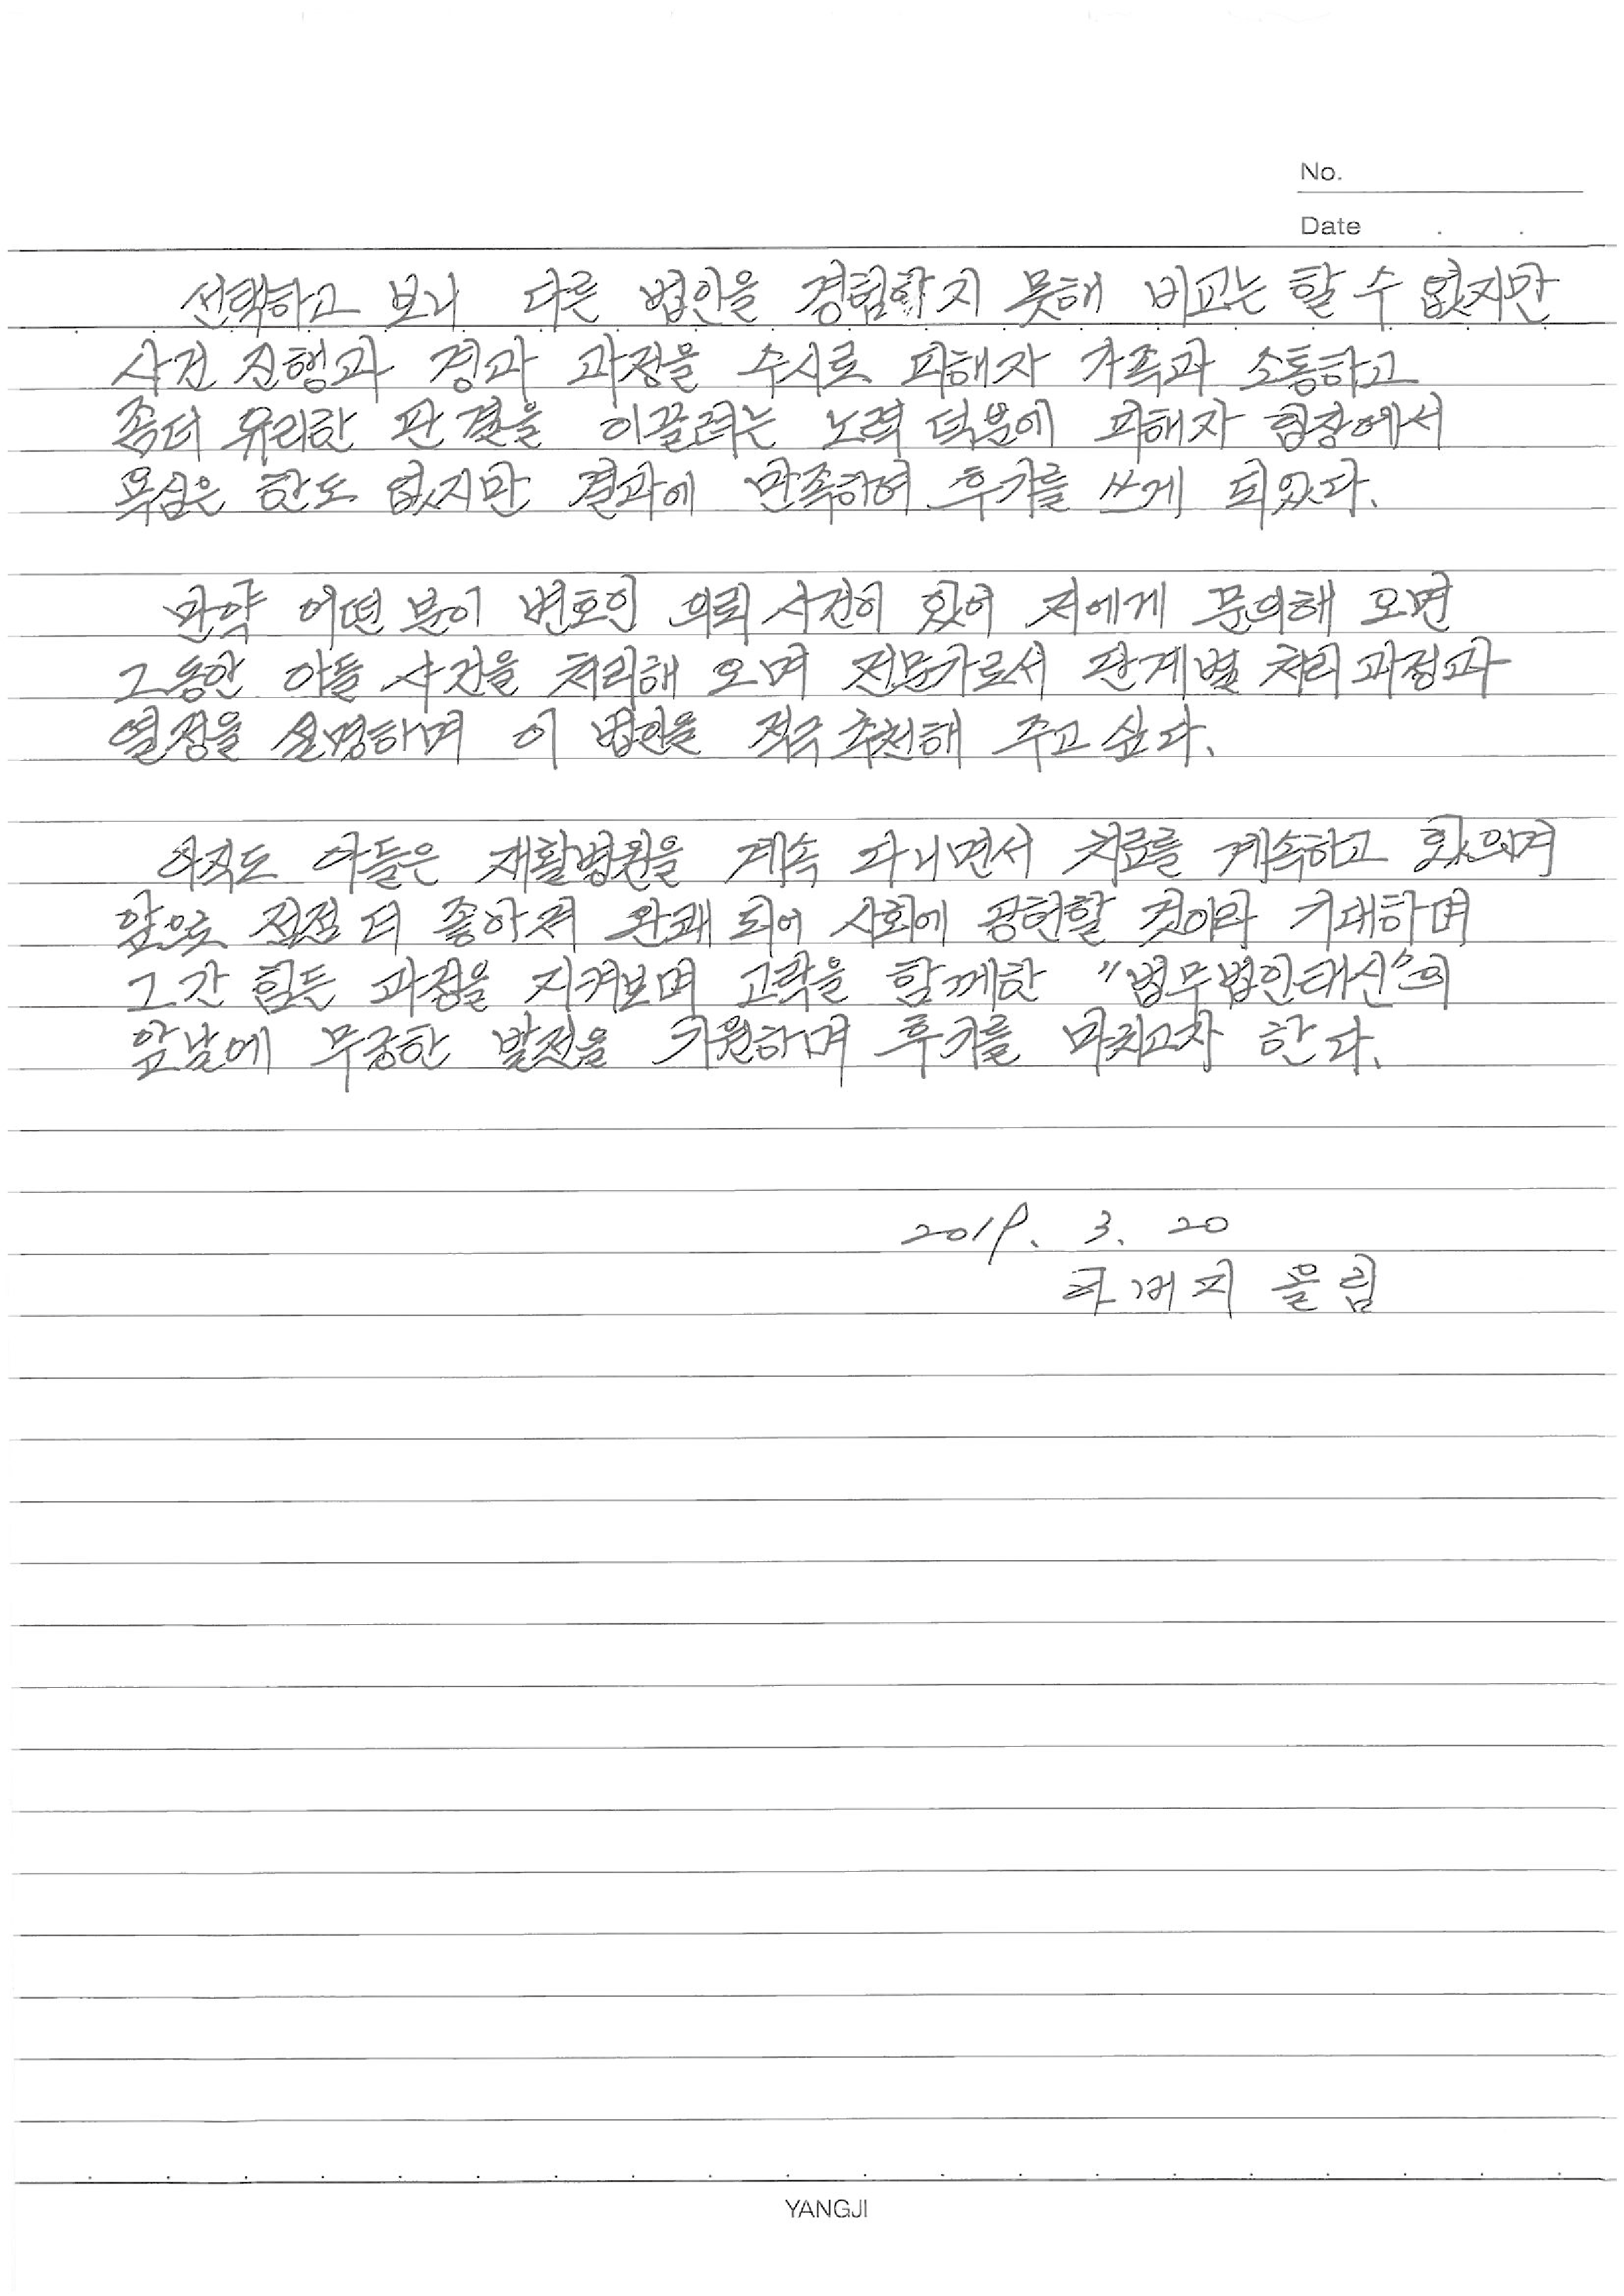 No.
Date . .
선택하고 보니 다른 법인을 경험하지 못해 비교는 할 수 없지만
사건 진행과 경과 과정을 수시로 피해자 가족과 소통하고
좀더 유리한 판결을 이끌려는 노력 덕분에 피해자 입장에서
욕심은 한도 없지만 결과에 만족하며 후기를 쓰게 되었다.
만약 어떤 분이 변호인 의뢰 사건이 있어 저에게 문의해 오면
그동안 아들 사건을 처리해 오며 전문가로서 단계별 처리 과정과
열정을 설명하며 이 법인을 적극 추천해 주고 싶다.
아직도 아들은 재활병원을 계속 다니면서 치료를 계속하고 있으며
앞으로 점점 더 좋아져 완쾌 되어 사회에 공헌할 것이라 기대하며
그간 힘든 과정을 지켜보며 고락을 함께한 "법무법인태신"의
앞날에 무궁한 발전을 기원하며 후기를 마치고자 한다.
2019. 3. 20
올림
YANGJI